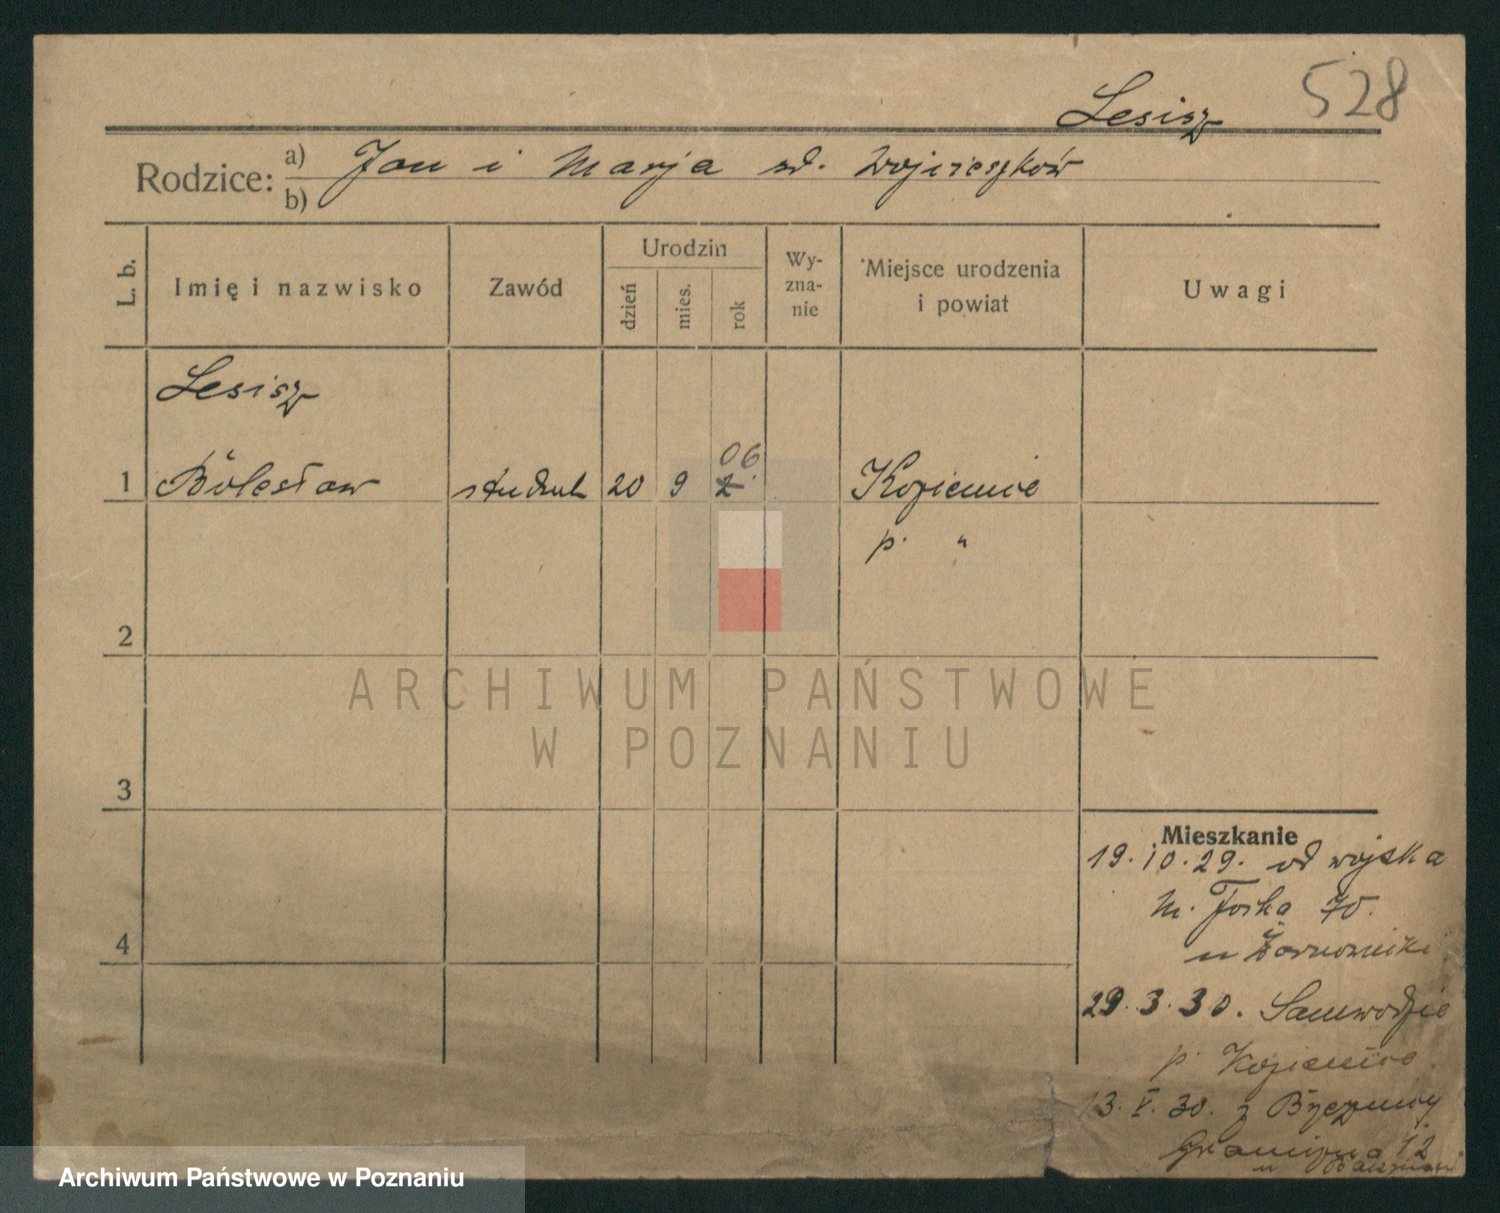 528
Lesisz
Rodzice: a) Jan i Marja zd. Wojcieszków
b)
L. b. Imię i nazwisko Zawód Urodzin dzień mies. rok Wyznanie Miejsce urodzenia i powiat Uwagi
Lesisz
06
1 Bolesław student 20 9 Kozienice
p. "
2
ARCHIWUM PAŃSTWOWE
W POZNANIU
3
Mieszkanie
19.10.29. od wojska
M. Focha 70.
u
4
29.3.30. Samwodzie
p. Kozienice.
13.V.30. z Brzeźnicy
Graniczna 12
u
Archiwum Państwowe w Poznaniu